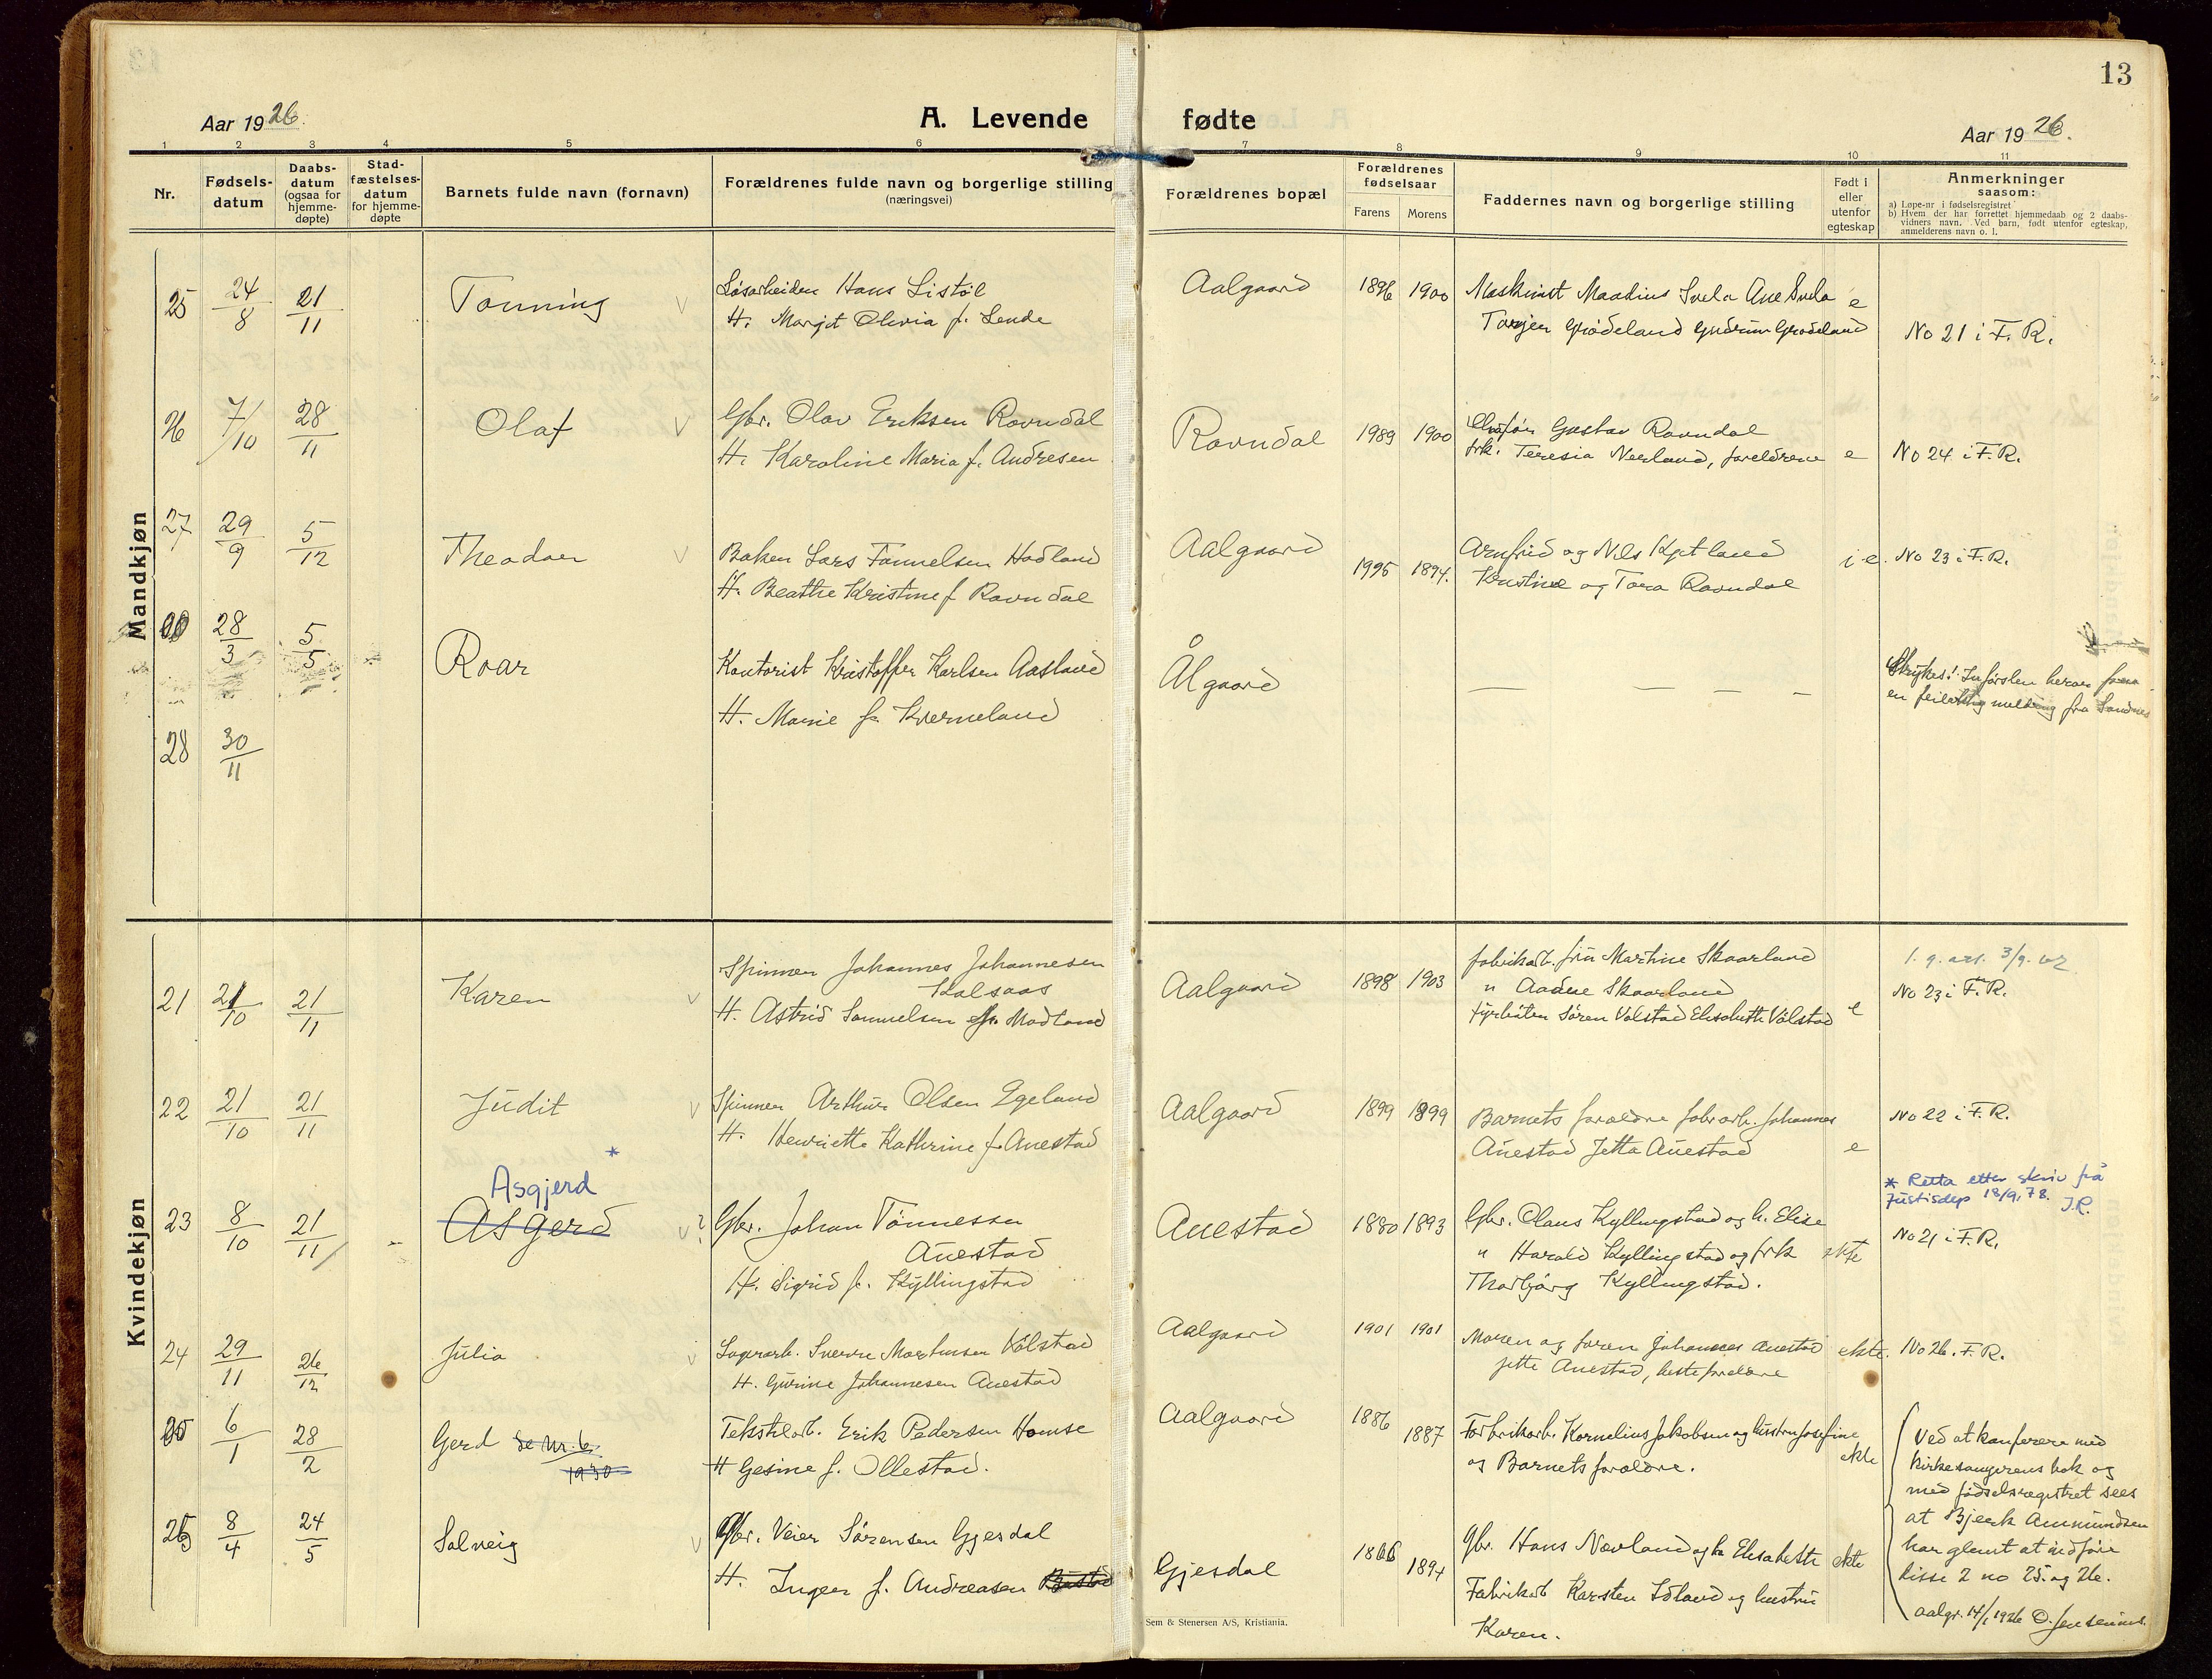 13
Aar 1926.
A. Levende fødte
Aar 1926.
1 2 3 4 5 6 7 8 9 10 11
Nr.
Fødsels-
datum
Daabs-
datum
(ogsaa for
hjemme-
døpte)
Stad-
fæstelses-
datum
for hjemme-
døpte
Barnets fulde navn (fornavn)
Forældrenes fulde navn og borgerlige stilling
(næringsvei)
Forældrenes bopæl
Forældrenes
fødselsaar
Farens Morens
Faddernes navn og borgerlige stilling
Født i
eller
utenfor
egteskap
Anmerkninger
saasom:
a) Løpe-nr i fødselsregistret
b) Hvem der har forrettet hjemmedaab og 2 daabs-
vidners navn. Ved barn, født utenfor egteskap,
anmelderens navn o. l.
Mandkjøn
25 24/8 21/11 Tonning
Løsarbeider Hans Listöl
H. Margit Olivia f. Lende
Aalgaard 1896 1900
Maskinist Maadius Svela Ane Svela e
Torger Grödeland Gudrun Grödeland
No 21 i F. R.
26 7/10 28/11 Olaf
Gbr. Olav Eriksen Ravndal
H. Karoline Maria f. Andresen
Ravndal 1989 1900
Gustav Ravndal
frk. Teresia Neeland, foreldrene e
No 24 i F.R.
27 29/9 5/12 Theodoer
Baker Lars Hadland
H. Beathe Kristine f Ravndal
Aalgaard 1995 1894.
Arnfrid og Nils Kjetland
Kristine og Tora Ravndal
i e. No 23 i F. R.
28/3 5/5 Roar
Kontorist Kristoffer Karlsen Aasland
H. Marie f. Kverneland
Ålgaard
— — — —
Strykes! Införslen herav
en feilaktig melding fra Sandnes
28 30/11
Kvindekjøn
21 21/10 21/11 Karen
Spinner Johannes Johannesen
Kalsaas
H. Astrid Samuelsen f. Madland
Aalgaard 1898 1903
fabrikarb. frü Martine Skaarland
" Aadne Skaarland
fyrböter Sören Välstad Elisabeth Välstad e
No 23 i F. R.
22 21/10 21/11 Judit
Spinner Arthur Olsen Egeland
H. Henriette Kathrine f. Auestad
Aalgaard 1899 1899
Barnets forældre fabrarb. Johannes
Auestad Jetta Auestad e
No 22 i F. R.
Asgjerd *
23 8/10 21/11 Asgerd
Gbr. Johan Tönnessen
Auestad
H. Sigrid f. Kyllingstad
Auestad 1880 1893
Gbr. Olaus Kyllingstad og h. Elise
" Harald Kyllingstad og frk ekte
Thorbjörg Kyllingstad.
* Retta etter skriv frå
Justisdep 18/9, 78. J.R.
No 21 i F. R.
24 29/11 26/12 Julia
Lagerarb. Sverre Martinsen Välstad
H. Gurine Johannesen Auestad
Aalgaard 1901 1901
Moren og faren Johannes Auestad ekte.
Jette Auestad, besteforeldre
No 26. F. R.
25 6/1 28/2 Gerd se nr. 6.
1930
Tekstilarb. Erik Pedersen Homse
H Gesine f. Ollestad.
Aalgaard 1886 1887
Fabrikarb. Kornelius Jakobsen og hustru Josefine
og Barnets forældre. ekte
26 8/4 24/5 Solveig
Gbr. Veier Sörensen Gjesdal
H. Inger f. Andreasen
Gjesdal 1866 1894
Gbr. Hans Nævland og h. Elisabeth ekte
Fabrikarb Karsten Idland og hustru
Karen.
Ved at konferere med
kirkesangerens bok og
med födselsregistret sees
at Bjerk Ammundsen
har glemt at indføre
disse 2 no 25. og 26.
Aalgr. 14/1 1926 O. Jensenius.
Sem & Stenersen A/S, Kristiania.